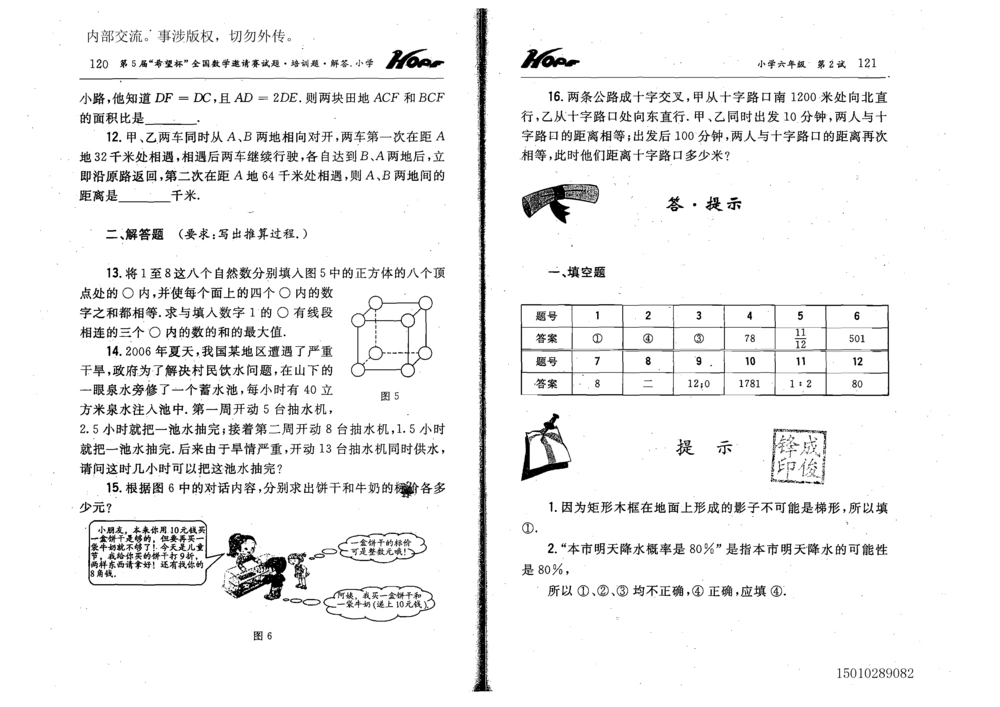 内部交流。事涉版权，切勿外传。
120 第5届“希望杯”全国数学邀请赛试题·培训题·解答.小学 HOPE
小路,他知道 DF = DC,且 AD = 2DE. 则两块田地 ACF 和 BCF
的面积比是________.
12. 甲、乙两车同时从 A、B 两地相向对开,两车第一次在距 A
地 32 千米处相遇,相遇后两车继续行驶,各自达到 B、A 两地后,立
即沿原路返回,第二次在距 A 地 64 千米处相遇,则 A、B 两地间的
距离是________千米.
二、解答题 (要求:写出推算过程.)
13. 将 1 至 8 这八个自然数分别填入图 5 中的正方体的八个顶
点处的 ○ 内,并使每个面上的四个 ○ 内的数
字之和都相等. 求与填入数字 1 的 ○ 有线段
相连的三个 ○ 内的数的和的最大值.
14. 2006 年夏天,我国某地区遭遇了严重
干旱,政府为了解决村民饮水问题,在山下的
一眼泉水旁修了一个蓄水池,每小时有 40 立
方米泉水注入池中. 第一周开动 5 台抽水机,
图 5
2.5 小时就把一池水抽完;接着第二周开动 8 台抽水机,1.5 小时
就把一池水抽完. 后来由于旱情严重,开动 13 台抽水机同时供水,
请问这时几小时可以把这池水抽完?
15. 根据图 6 中的对话内容,分别求出饼干和牛奶的标价各多
少元?
小朋友,本来你用10元钱买
一盒饼干是够的,但要再买一
袋牛奶就不够了!今天是儿童
节,我给你买的饼干打9折,
两样东西请拿好!还有找你的
8角钱.
一盒饼干的标价
可是整数元哦!
阿姨,我买一盒饼干和
一袋牛奶(递上10元钱)
图 6
HOPE 小学六年级 第2试 121
16. 两条公路成十字交叉,甲从十字路口南 1200 米处向北直
行,乙从十字路口处向东直行. 甲、乙同时出发 10 分钟,两人与十
字路口的距离相等;出发后 100 分钟,两人与十字路口的距离再次
相等,此时他们距离十字路口多少米?
答·提示
一、填空题
题号 1 2 3 4 5 6
答案 ① ④ ③ 78 11/12 501
题号 7 8 9 10 11 12
答案 8 二 12;0 1781 1:2 80
提 示
锋成
印俊
1. 因为矩形木框在地面上形成的影子不可能是梯形,所以填
①.
2. “本市明天降水概率是 80%”是指本市明天降水的可能性
是 80%,
所以 ①、②、③ 均不正确,④ 正确,应填 ④.
15010289082